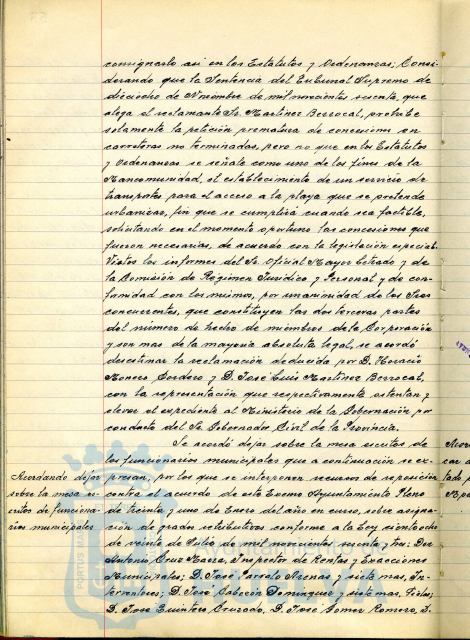 consignarlo así en los Estatutos y Ordenanzas; Consi-
derando que la Sentencia del Tribunal Supremo de
dieciocho de Noviembre de mil novecientos sesenta, que
alega el reclamante Sr. Martínez Berrocal, prohibe
solamente la petición prematura de concesiones en
carreteras no terminadas, pero no que en los Estatutos
y Ordenanzas se señale como uno de los fines de la
Mancomunidad, el establecimiento de un servicio de
transportes para el acceso a la playa que se pretende
urbanizar, fin que se cumplirá cuando sea factible,
solicitando en el momento oportuno las concesiones que
fueron necesarias, de acuerdo con la legislación especial.
Vistos los informes del Sr. Oficial Mayor Letrado y de
la Comisión de Régimen Jurídico y Personal y de con-
formidad con los mismos, por unanimidad de los Sres
concurrentes, que constituyen las dos terceras partes
del número de hecho de miembros de la Corporación
y son mas de la mayoría absoluta legal, se acordó
desestimar la reclamación deducida por D. Horacio
Cordero y D. José Luis Martínez Berrocal,
con la representación que respectivamente ostentan y
elevar el expediente al Ministerio de la Gobernación por
conducto del Sr. Gobernador Civil de la Provincia.
Se acordó dejar sobre la mesa escritos de
los funcionarios municipales que a continuación se ex-
presan, por los que se interponen recursos de reposición
contra el acuerdo de este Excmo Ayuntamiento Pleno
de treinta y uno de Enero del año en curso, sobre asigna-
ción de grados retributivos conforme a la Ley ciento ocho
de veinte de Julio de mil novecientos sesenta y tres: Don
Antonio Cruz, Inspector de Rentas y Exacciones
Municipales; D. José Arenas y siete mas, In-
terventores; D. José Domínguez y siete mas, Fieles;
D. José Quintero Cruzado, D. José Gómez Romero, D.
Acordando dejar
sobre la mesa es-
critos de funciona-
rios municipales
Ayuntamiento de